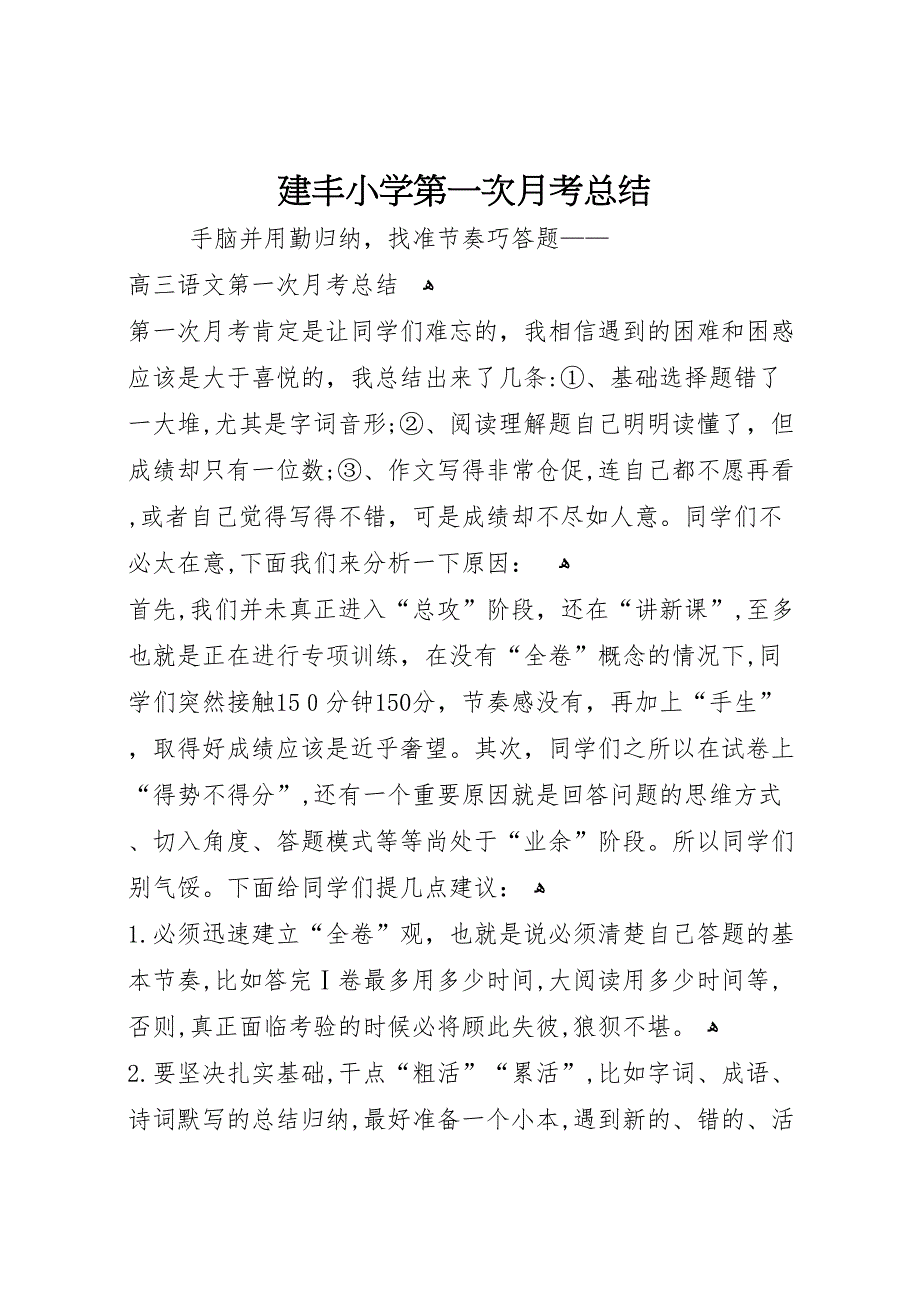 建丰小学第一次月考总结
手脑并用勤归纳，找准节奏巧答题——
高三语文第一次月考总结 ﻫ
第一次月考肯定是让同学们难忘的，我相信遇到的困难和困惑
应该是大于喜悦的，我总结出来了几条:①、基础选择题错了
一大堆,尤其是字词音形;②、阅读理解题自己明明读懂了，但
成绩却只有一位数;③、作文写得非常仓促,连自己都不愿再看
,或者自己觉得写得不错，可是成绩却不尽如人意。同学们不
必太在意,下面我们来分析一下原因： ﻫ
首先,我们并未真正进入“总攻”阶段，还在“讲新课”,至多
也就是正在进行专项训练，在没有“全卷”概念的情况下,同
学们突然接触15０分钟150分，节奏感没有，再加上“手生”
，取得好成绩应该是近乎奢望。其次，同学们之所以在试卷上
“得势不得分”,还有一个重要原因就是回答问题的思维方式
、切入角度、答题模式等等尚处于“业余”阶段。所以同学们
别气馁。下面给同学们提几点建议： ﻫ
1.必须迅速建立“全卷”观，也就是说必须清楚自己答题的基
本节奏,比如答完Ⅰ卷最多用多少时间,大阅读用多少时间等,
否则,真正面临考验的时候必将顾此失彼,狼狈不堪。ﻫ
2.要坚决扎实基础,干点“粗活”“累活”,比如字词、成语、
诗词默写的总结归纳,最好准备一个小本,遇到新的、错的、活